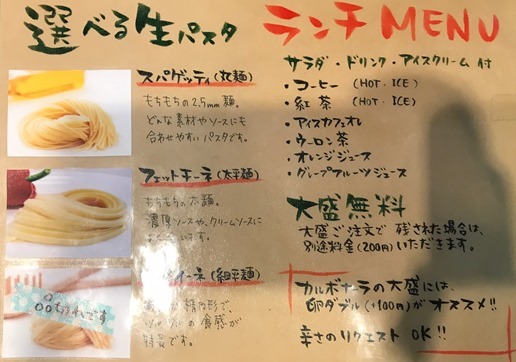 選べる生パスタ
スパゲッティ(丸麺)
もちもちの2.5mm麺。
どんな素材やソースにも
合わせやすいパスタです。
フェットチーネ(太平麺)
もちもちの太麺。
濃厚ソースや、クリームソースに
イーネ(細平麺)
楕円形で、
の食感が
特長です。
ランチMENU
サラダ・ドリンク・アイスクリーム付
・コーヒー (HOT・ICE)
・紅茶 (HOT・ICE)
・アイスカフェオレ
・ウーロン茶
・オレンジジュース
・グレープフルーツジュース
大盛無料
大盛ご注文で残された場合は、
別途料金(200円)いただきます。
カルボナーラの大盛には、
卵ダブル(+100円)がオススメ!!
辛さのリクエストOK!!